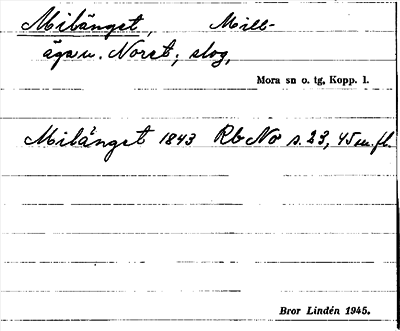 Milänget, Mill-
ägsu. Noret; slog,
Mora sn o. tg, Kopp. l.
Milänget 1843 Rb No s. 23, 45 m. fl.
Bror Lindén 1945.